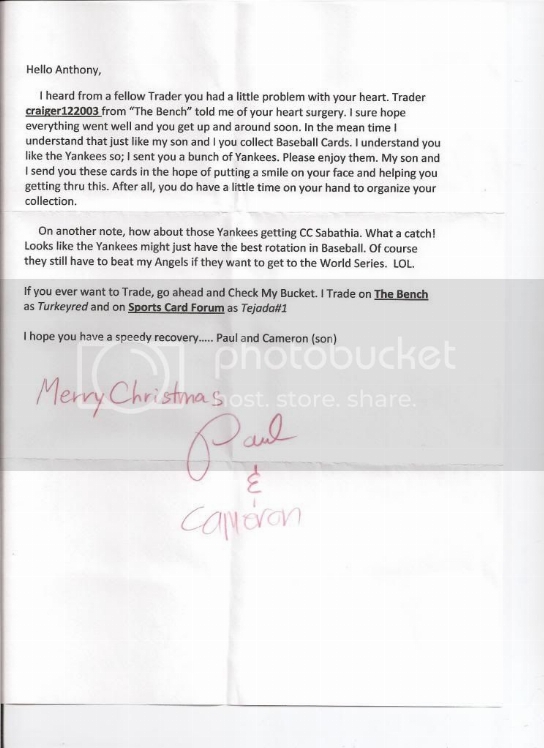 Hello Anthony,
I heard from a fellow Trader you had a little problem with your heart. Trader
craiger122003 from “The Bench” told me of your heart surgery. I sure hope
everything went well and you get up and around soon. In the mean time I
understand that just like my son and I you collect Baseball Cards. I understand you
like the Yankees so; I sent you a bunch of Yankees. Please enjoy them. My son and
I send you these cards in the hope of putting a smile on your face and helping you
getting thru this. After all, you do have a little time on your hand to organize your
collection.
On another note, how about those Yankees getting CC Sabathia. What a catch!
Looks like the Yankees might just have the best rotation in Baseball. Of course
they still have to beat my Angels if they want to get to the World Series. LOL.
If you ever want to Trade, go ahead and Check My Bucket. I Trade on The Bench
as Turkeyred and on Sports Card Forum as Tejada#1
I hope you have a speedy recovery..... Paul and Cameron (son)
photobucket
host. store. share.
Merry Christmas
Paul
&
Cameron